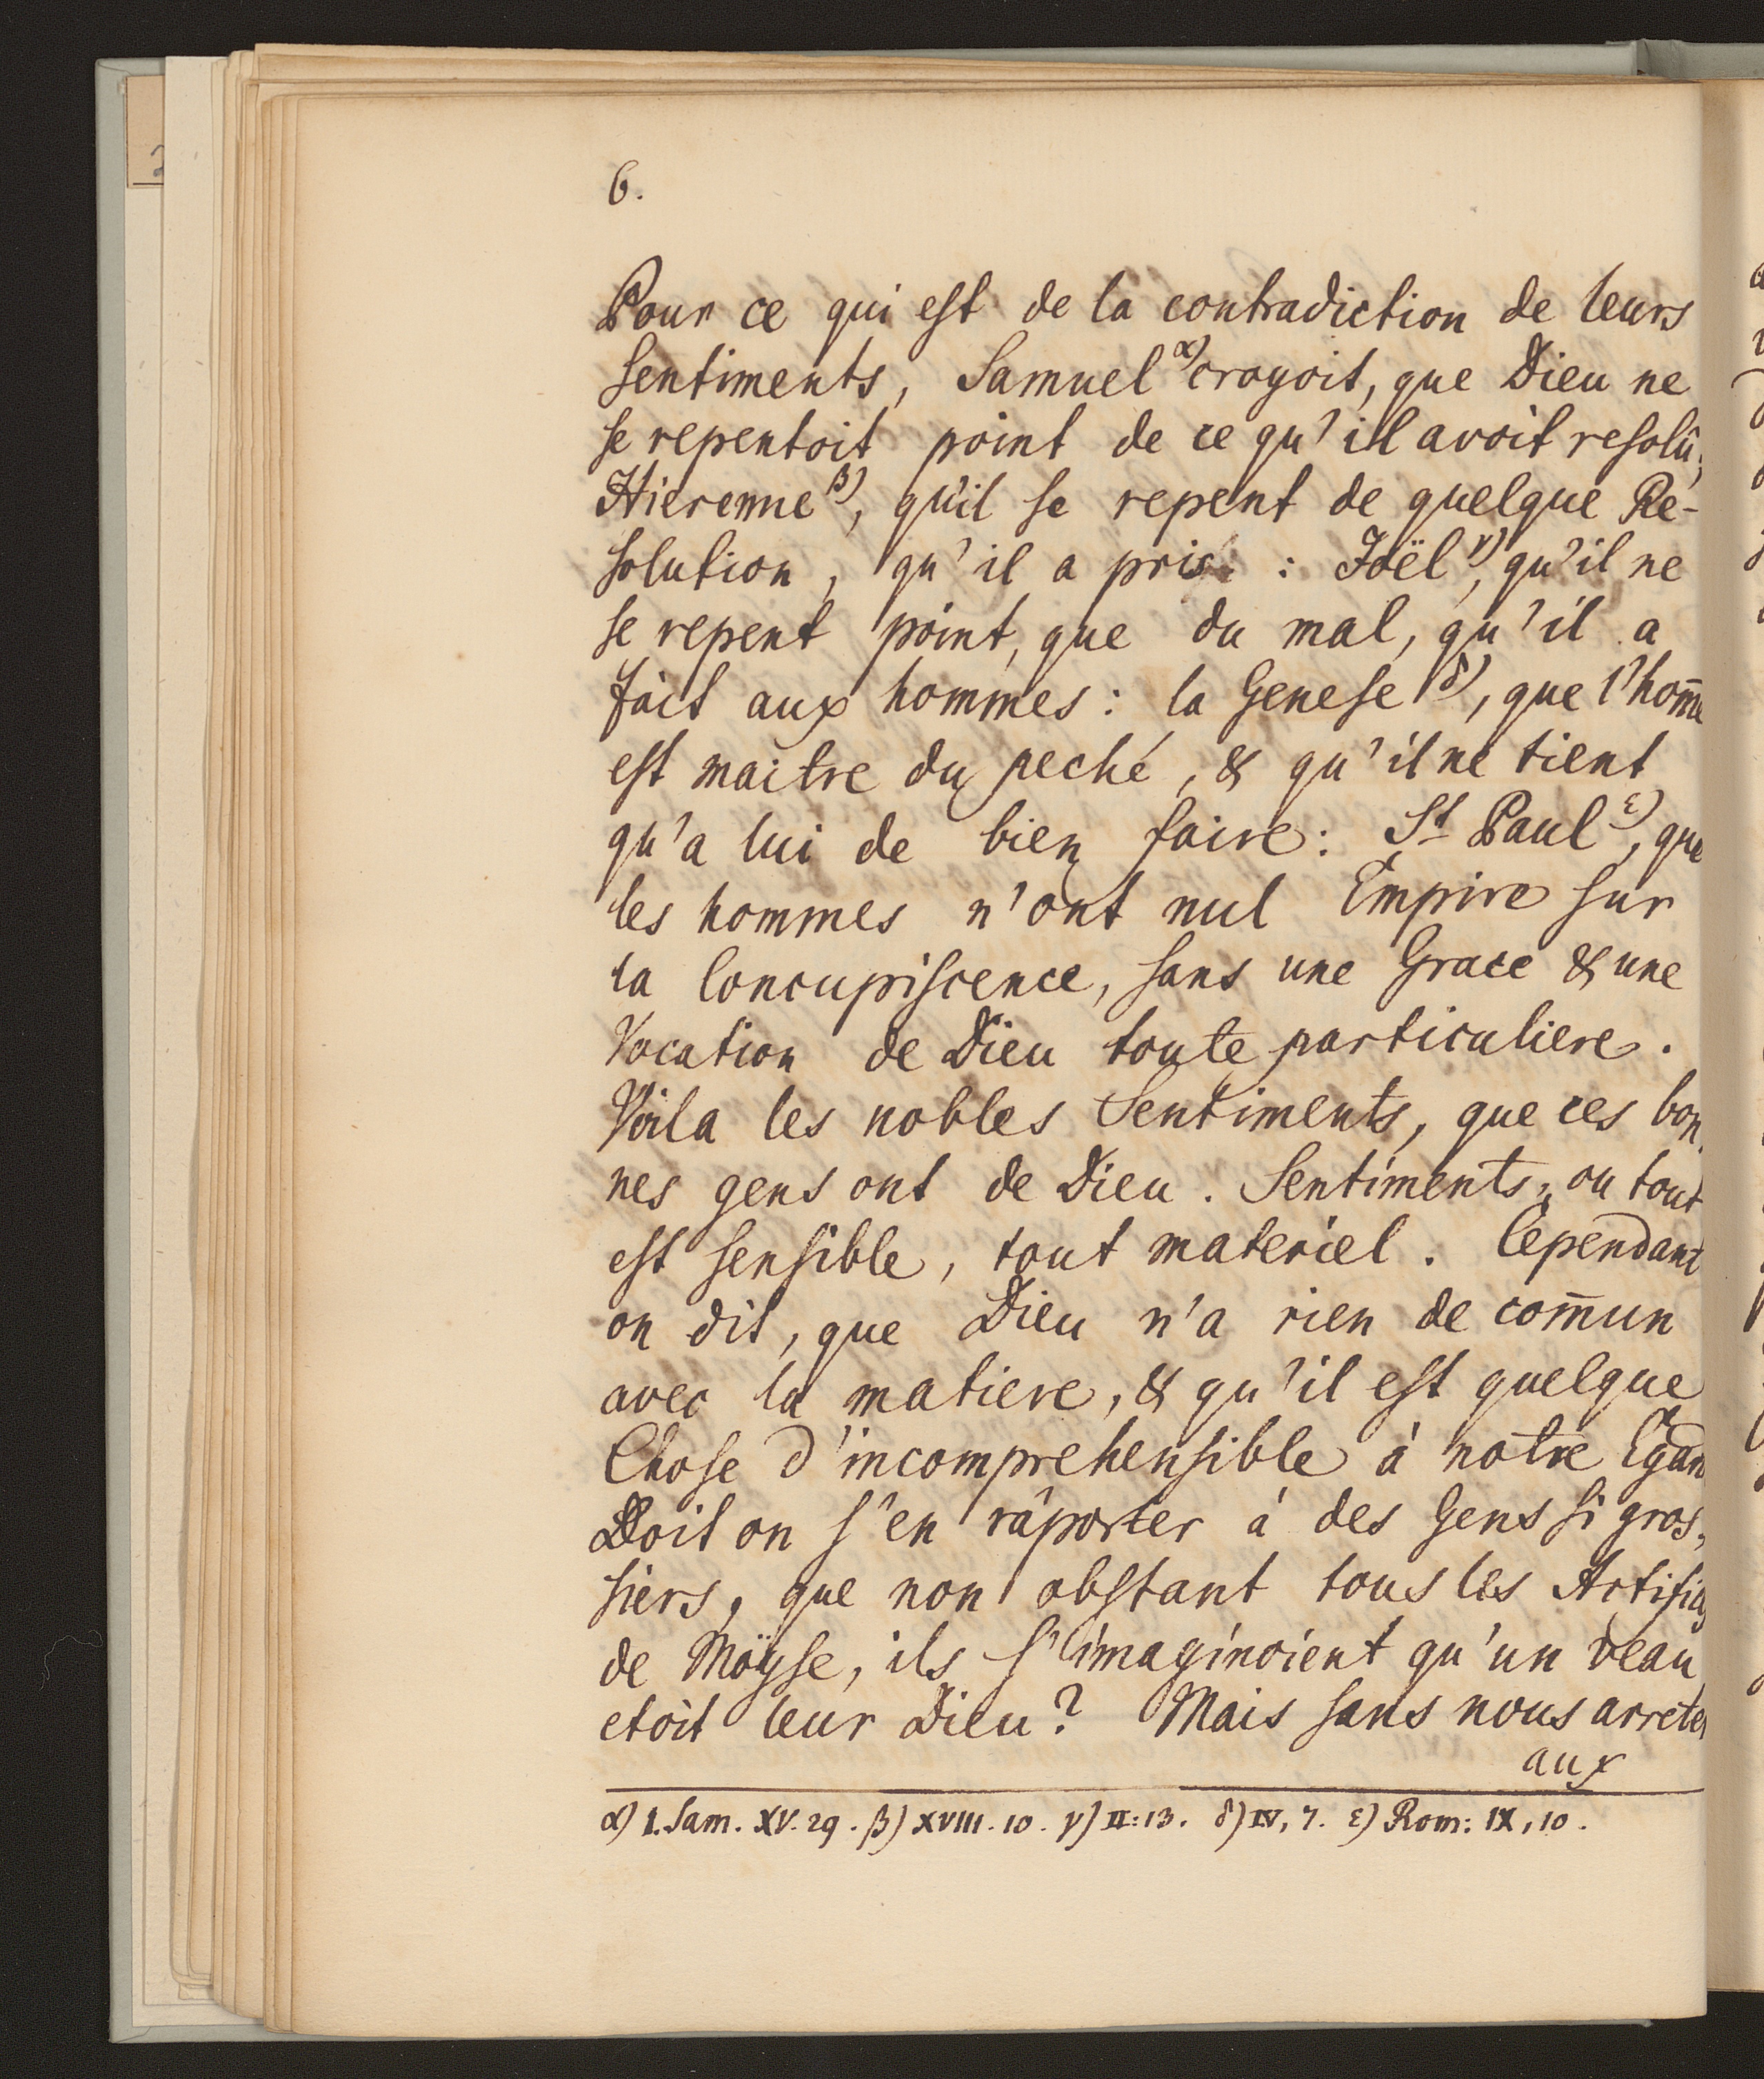 6.
Pour ce qui est de la contradiction de leurs
sentiments, Samuel α) croyoit, que Dieu ne
se repentoit point de ce qu'il avoit resolû;
Hieremie β), qu'il se repent de quelque Re-
solution, qu'il a pris : Joël γ), qu'il ne
se repent point, que du mal, qu'il a
fait aux hommes: la Genese δ), que l'hom̄e
est maitre du peché, & qu'il ne tient
qu'a lui de bien faire: St Paul ε), que
les hommes n'ont nul Empire sur
la Concupiscence, sans une Grace & une
Vocation de Dieu toute particuliere.
Voila les nobles Sentiments, que ces bon-
nes gens ont de Dieu. Sentiments, ou tout
est sensible, tout materiel. Cependant
on dit, que Dieu n'a rien de com̄un
avec la matiere, & qu'il est quelque
Chose d'incomprehensible à notre Egard
Doit on s'en râporter à des Gens si gros-
siers, que non obstant tous les Artifices
de Moÿse, ils s'imaginoient qu'un veau
etoit leur Dieu? Mais sans nous arreter
aux
α) I. Sam. XV. 29. β) XVIII. 10. γ) II: 13. δ) IV, 7. ε) Rom: IX, 10.